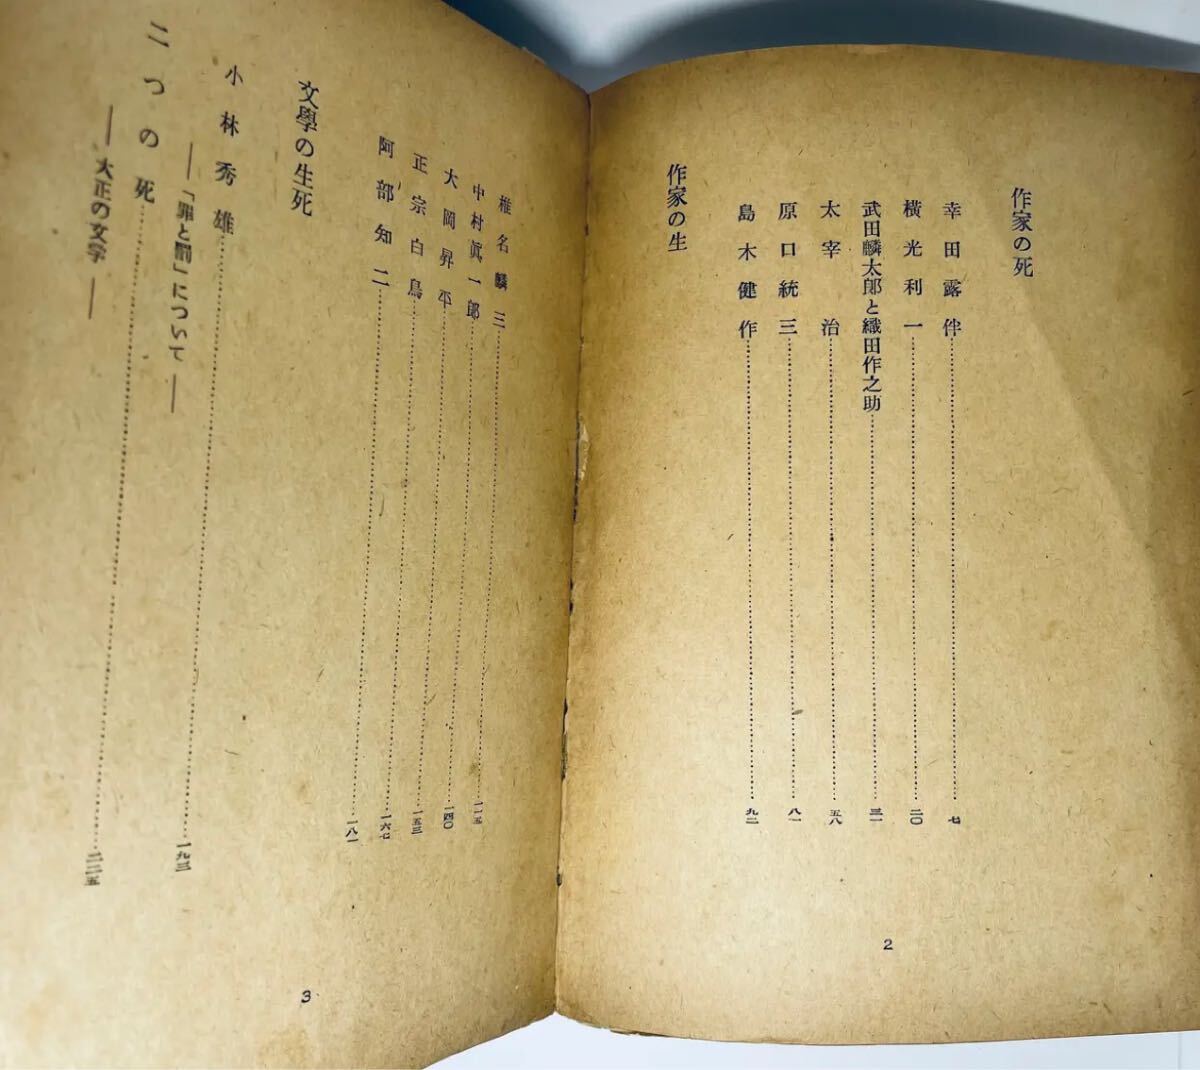 作家の死
幸田露伴…………七
横光利一…………二〇
武田麟太郎と織田作之助…………三一
太宰治…………五八
原口統三…………八一
島木健作…………九二
作家の生
2
椎名麟三…………一一五
中村眞一郎…………一四〇
大岡昇平…………一五三
正宗白鳥…………一六七
阿部知二…………一八一
文學の生死
小林秀雄…………一九三
――「罪と罰」について――
二つの死…………二二五
――大正の文学――
3